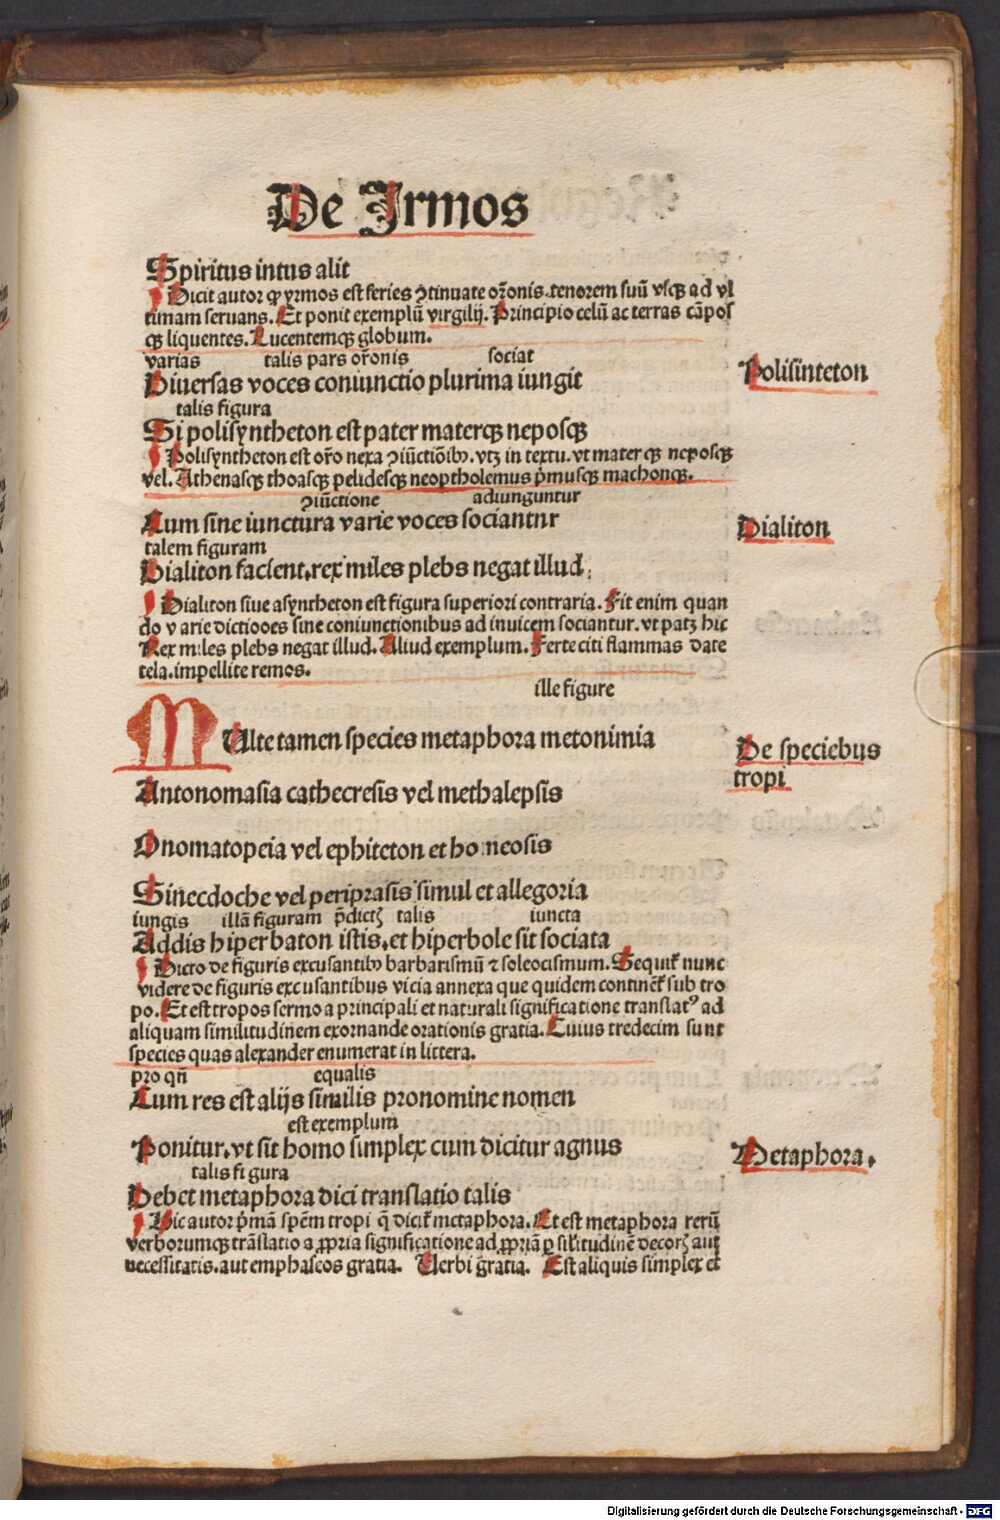 De Irmos
Spiritus intus alit
Dicit autor ꝙ yrmos est series ꝯtinuate or̃onis.tenorem suũ vsqꝫ ad vl
timam seruans. Et ponit exemplũ virgilij. Principio celũ ac terras cãpos
qꝫ liquentes. Lucentemqꝫ globum.
varias talis pars or̃onis sociat
Diuersas voces coniunctio plurima iungit
Polisinteton
talis figura
Si polisyntheton est pater materqꝫ neposqꝫ
Polisyntheton est or̃o nexa ꝯiũctiõibꝰ. vtꝫ in textu. vt mater qꝫ neposqꝫ
vel. Athenasqꝫ thoasqꝫ pelidesqꝫ neoptholemus p̃musqꝫ machonqꝫ.
ꝯiũctione adiunguntur
Cum sine iunctura varie voces sociantur
Dialiton
talem figuram
Dialiton facient.rex miles plebs negat illud.
Dialiton siue asyntheton est figura superiori contraria. Fit enim quan
do varie dictiooes sine coniunctionibus ad inuicem sociantur. vt patꝫ hic
Rex miles plebs negat illud. Aliud exemplum. Ferte citi flammas date
tela.impellite remos.
ille figure
MUlte tamen species metaphora metonimia
De speciebus
tropi
Antonomasia cathecresis vel methalepsis
Onomatopeia vel ephiteton et homeosis
Sinecdoche vel periprasis simul et allegoria
iungis illã figuram p̃dictꝫ talis iuncta
Addis hiperbaton istis.et hiperbole sit sociata
Dicto de figuris excusantibꝰ barbarismũ ⁊ soleocismum. Sequit᷑ nunc
videre de figuris excusantibus vicia annexa que quidem continẽt᷑ sub tro
po. Et est tropos sermo a principali et naturali significatione translatꝰ ad
aliquam similitudinem exornande orationis gratia. Cuius tredecim sunt
species quas alexander enumerat in littera.
pro qñ equalis
Cum res est alijs similis pronomine nomen
est exemplum
Ponitur.vt sit homo simplex cum dicitur agnus
Metaphora.
talis figura
Debet metaphora dici translatio talis
Hic autor p̃mã spẽm tropi q̃ dicit᷑ metaphora. Et est metaphora rerũ
verborumqꝫ trãslatio a ꝓpria significatione ad ꝓpriã ꝑ silitudinẽ decorꝫ aut
necessitatis.aut emphaseos gratia. Uerbi gratia. Est aliquis simplex et
Digitalisierung gefördert durch die Deutsche Forschungsgemeinschaft - DFG